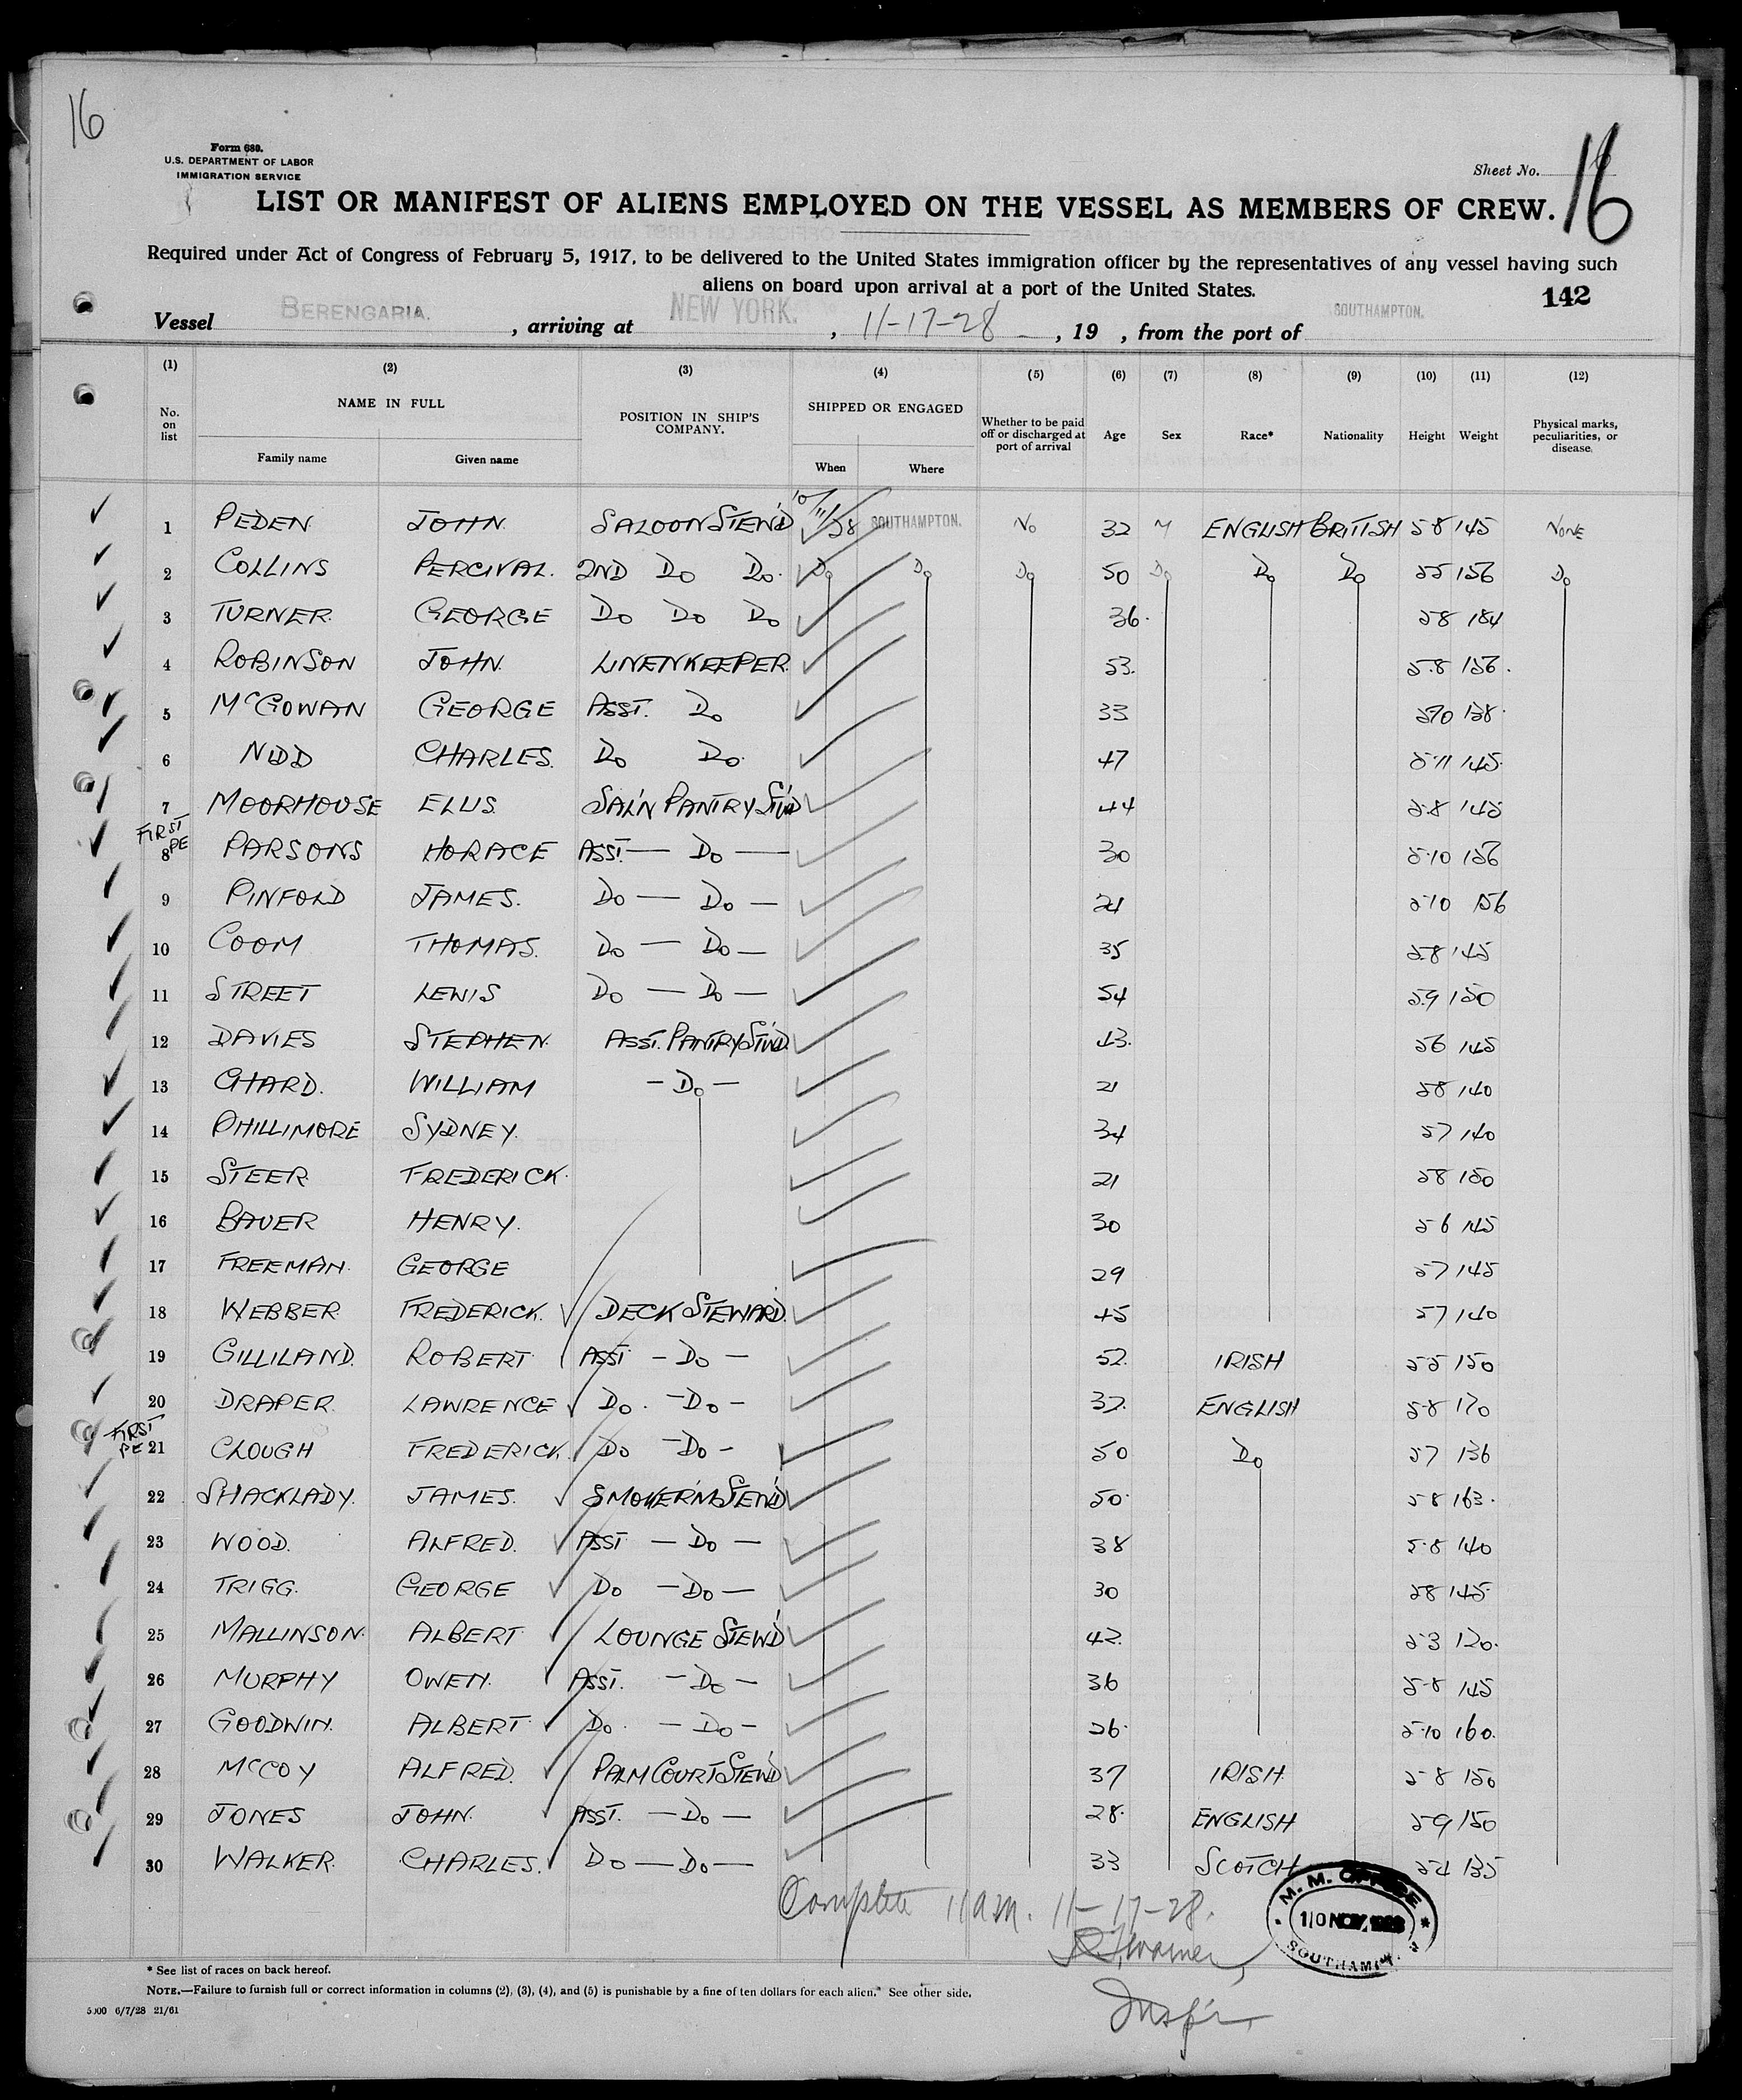 16
Form 689.
U.S. DEPARTMENT OF LABOR
IMMIGRATION SERVICE
Sheet No. 16
LIST OR MANIFEST OF ALIENS EMPLOYED ON THE VESSEL AS MEMBERS OF CREW.
Required under Act of Congress of February 5, 1917, to be delivered to the United States immigration officer by the representatives of any vessel having such
aliens on board upon arrival at a port of the United States.
142
Vessel BERENGARIA. , arriving at NEW YORK. , 11-17-28 , 19 , from the port of SOUTHAMPTON.
(1) (2) (3) (4) (5) (6) (7) (8) (9) (10) (11) (12)
No. on list NAME IN FULL POSITION IN SHIP'S COMPANY. SHIPPED OR ENGAGED Whether to be paid off or discharged at port of arrival Age Sex Race* Nationality Height Weight Physical marks, peculiarities, or disease
Family name Given name When Where
1 PEDEN JOHN SALOON STEW'D 10/11/28 SOUTHAMPTON. No 32 M ENGLISH BRITISH 5 8 145 NONE
2 COLLINS PERCIVAL. 2ND Do Do. Do Do Do 50 Do Do Do 55 156 Do
3 TURNER. GEORGE Do Do Do 36. 58 184
4 ROBINSON JOHN. LINENKEEPER. 53. 5.8 156.
5 McGOWAN GEORGE ASST. Do 33 138.
6 NIDD CHARLES. Do Do. 47 5.11 145.
7 MOORHOUSE ELLIS. SAL'N PANTRY ST'WD 44 5.8 145
FIRST PE
8 PARSONS HORACE ASST. — Do — 30 5.10 156
9 PINFOLD JAMES. Do — Do — 24 5.10 156
10 COOM THOMAS. Do — Do — 35 5.8 145
11 STREET LEWIS Do — Do — 54 5.9 150
12 DAVIES STEPHEN. ASST. PANTRY ST'WD. 43. 56 145
13 GHARD. WILLIAM — Do — 21 58 140
14 PHILLIMORE SYDNEY. 34 57 140
15 STEER FREDERICK. 21 58 150
16 BAUER HENRY. 30 5 6 145
17 FREEMAN. GEORGE 29 57 145
18 WEBBER FREDERICK. DECK STEWARD. 45 57 140
19 GILLILAND. ROBERT ASST — Do — 52. IRISH 55 150
20 DRAPER. LAWRENCE Do. — Do — 32. ENGLISH 5.8 170
FIRST PE
21 CLOUGH FREDERICK. Do — Do — 50 Do 57 136
22 SHACKLADY. JAMES. SMOKER'M STEW'D 50. 5 8 163.
23 WOOD. ALFRED. ASST — Do — 38 5.8 140
24 TRIGG. GEORGE Do — Do — 30 58 145.
25 MALLINSON. ALBERT. LOUNGE STEW'D 42. 5.3 120.
26 MURPHY OWEN. ASST. — Do — 36 5.8 145
27 GOODWIN. ALBERT. Do. — Do — 26. 5.10 160.
28 McCOY ALFRED. PALM COURT STEW'D 37 IRISH. 5 8 150
29 JONES JOHN. ASST. — Do — 28. ENGLISH 59 150
30 WALKER. CHARLES. Do — Do — 33 SCOTCH 54 135
Complete 11 am. 11-17-28.
Insp'r.
M. M. OFFICE
10 NOV. 1928
SOUTHAMPTON
* See list of races on back hereof.
NOTE.—Failure to furnish full or correct information in columns (2), (3), (4), and (5) is punishable by a fine of ten dollars for each alien. See other side.
5000 6/7/28 21/61